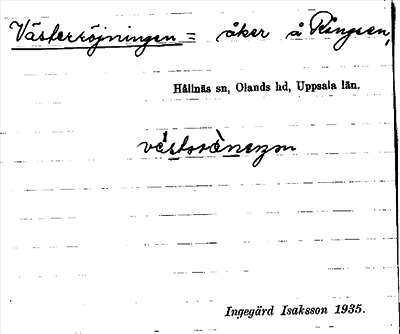 Västerröjningen = åker å Ringsen,
Hållnäs sn, Olands hd, Uppsala län.
Ingegärd Isaksson 1935.